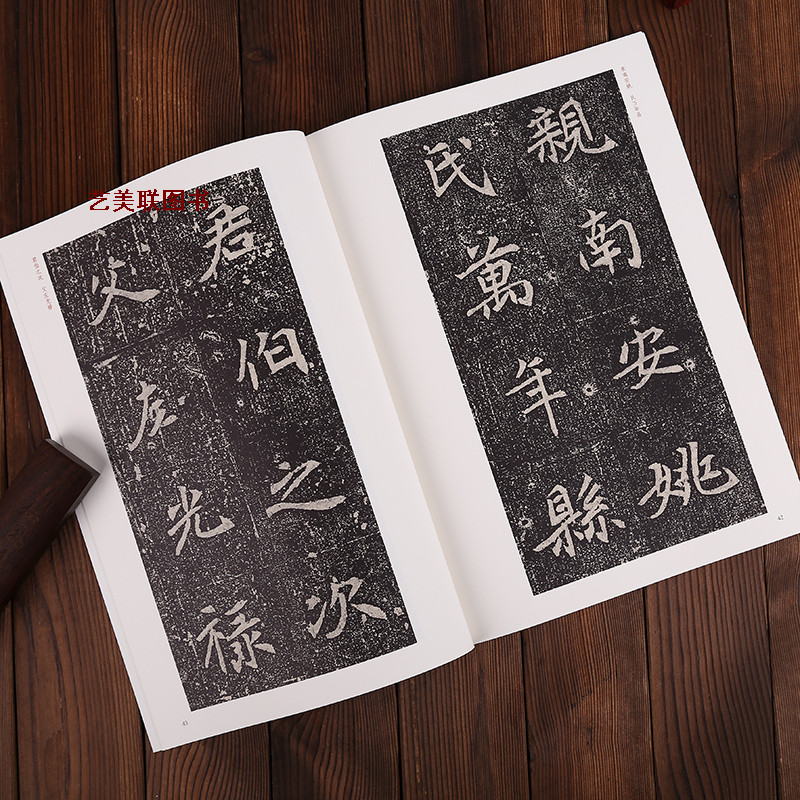 艺美联图书
親南安姚
民萬年縣
42
君伯之次
父光禄
43